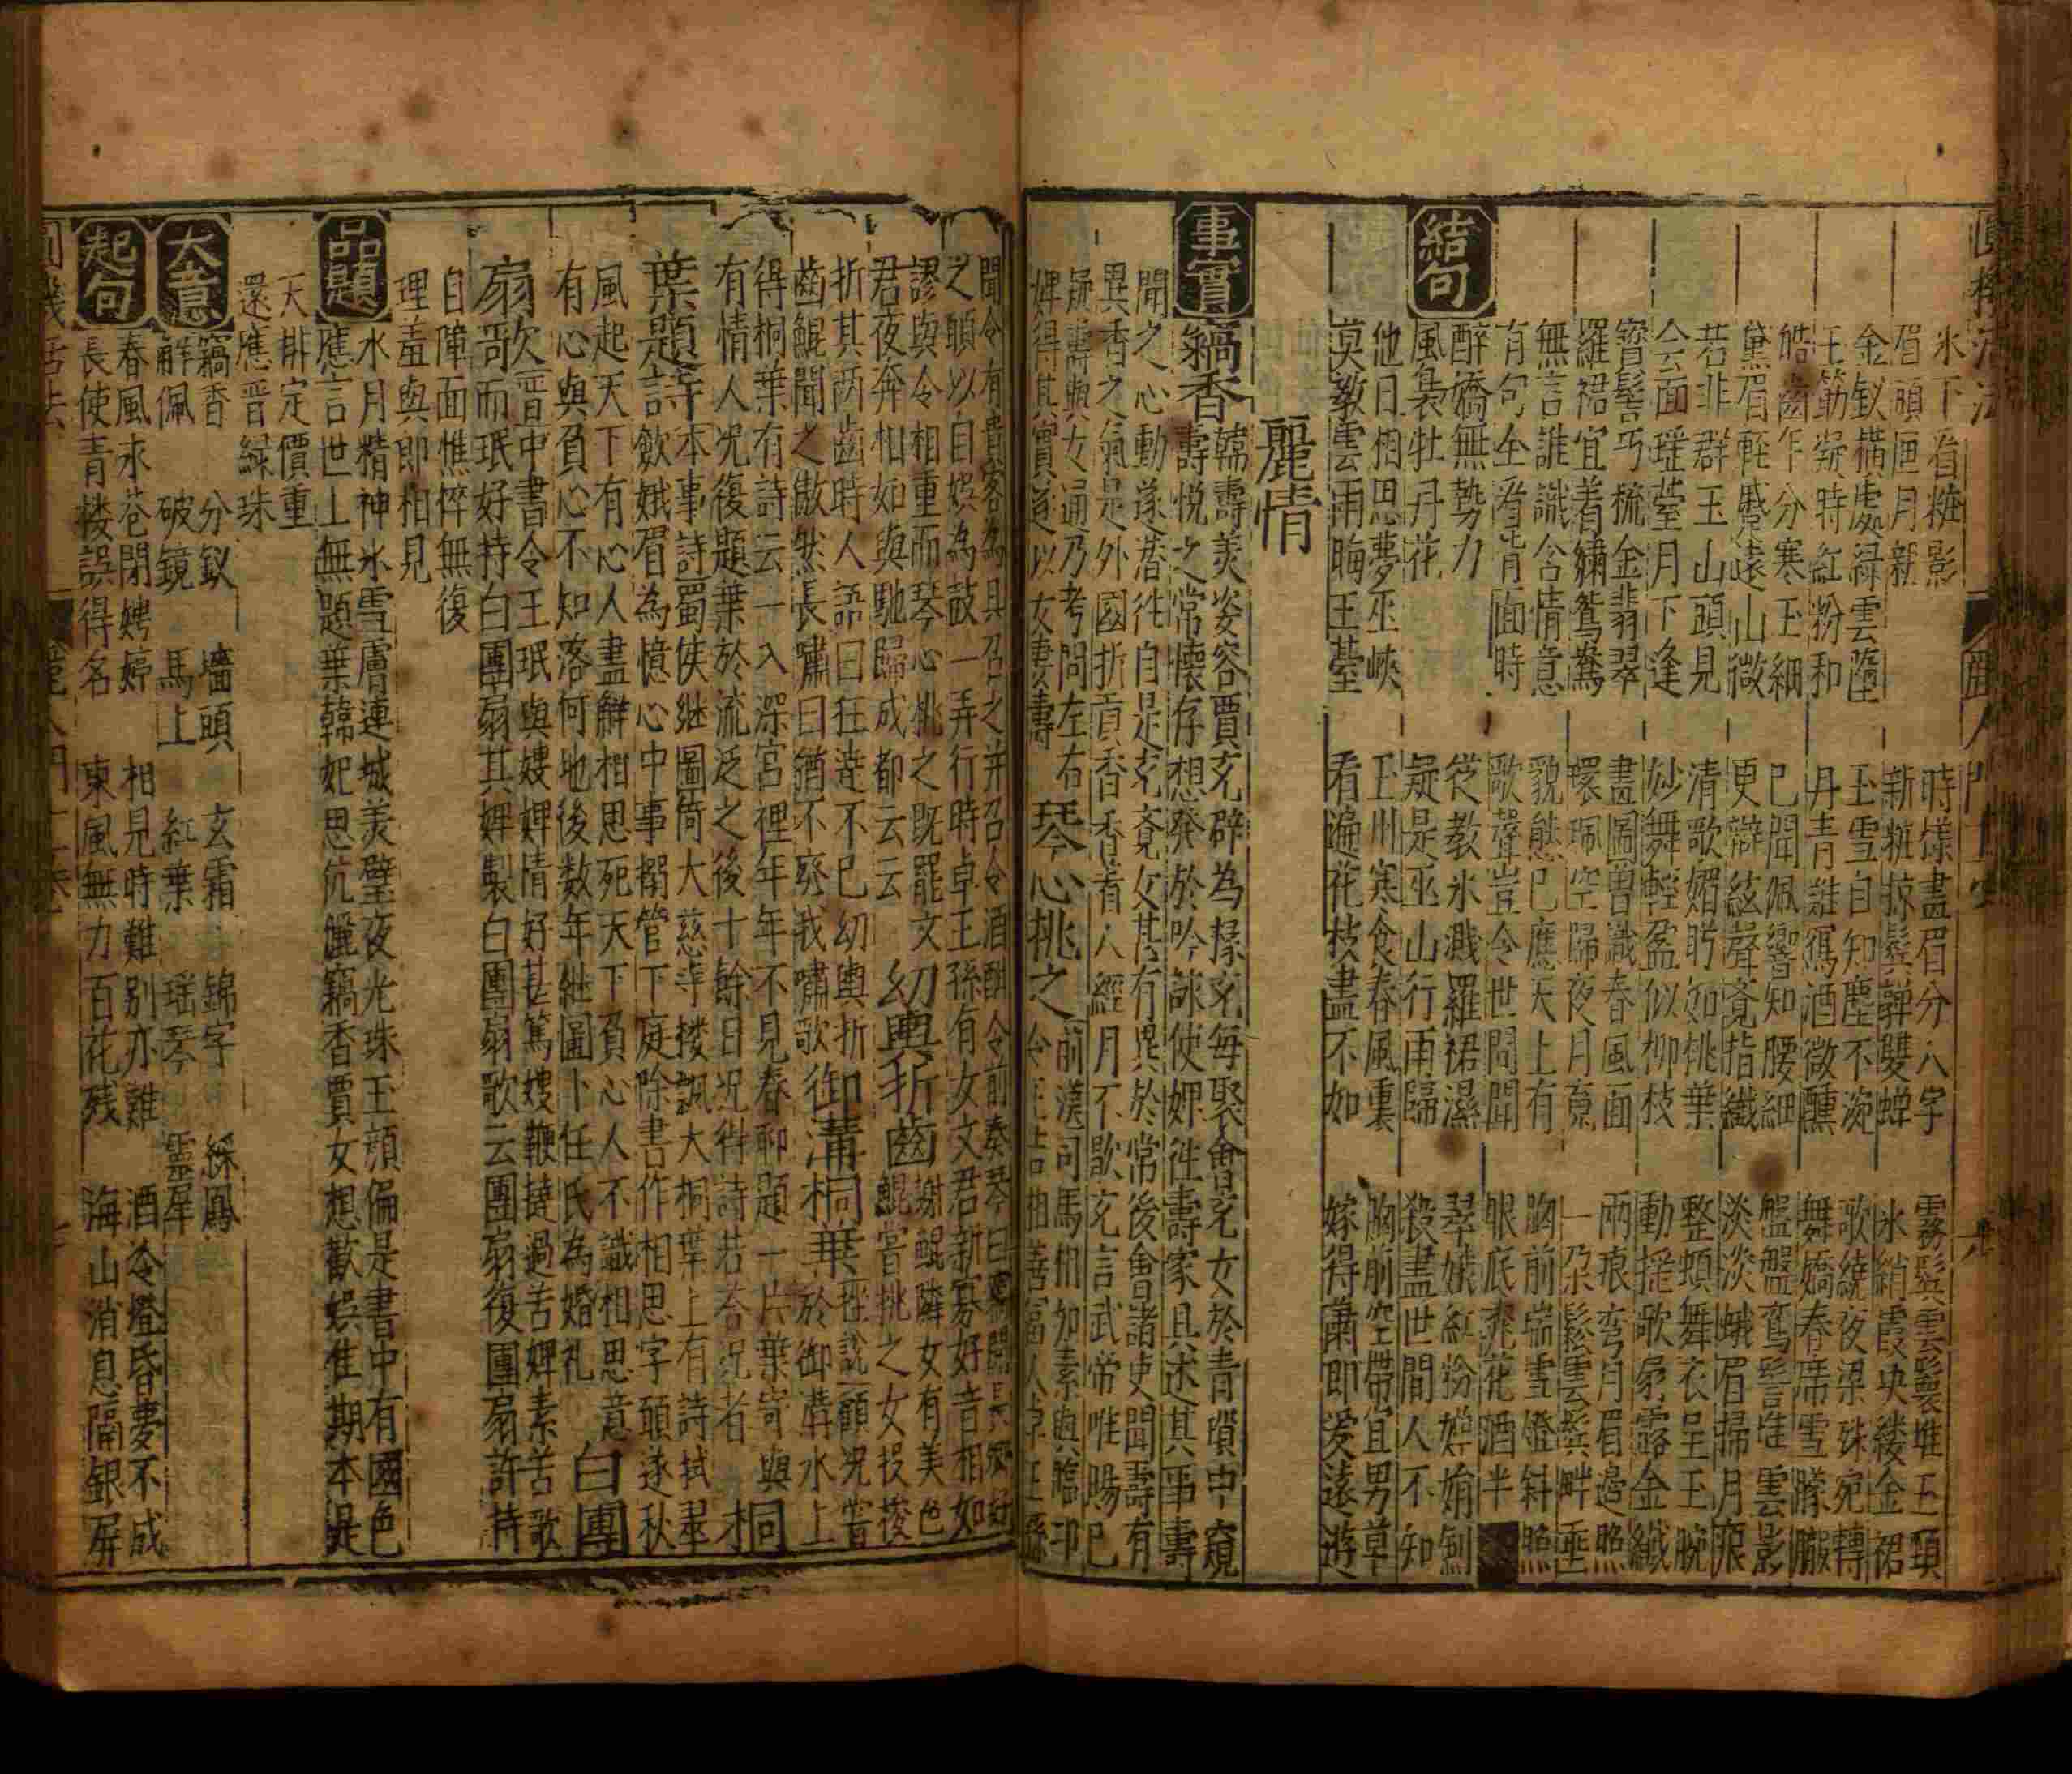 圓機活法
麗人門十六
水下看粧影 時㨾畫眉分八字 霧鬓雲鬟堆玉頸
眉頭画月新 新粧掠鬓嚲雙蟬 氷綃霞玦縷金裙
金釵橫處綠雲墮 玉雪自知塵不涴 歌繞夜梁珠宛轉
玉筯凝時紅粉和 丹青難寫酒微醺 舞嬌春席雪朦朧
皓齒乍分寒玉細 已聞佩響知腰細 盤盤鸞髻堆雲影
黛眉輕蹙遠山微 更辯絃聲覺指纖 淡淡蛾眉掃月痕
若非群玉山頭見 清歌媚眄如桃葉 整頓舞衣呈玉腕
会面瑶䑓月下逢 妙舞輕盈似柳枝 動揺歌扇露金纖
寳髻巧梳金翡翠 畫圖曾識春風面 兩痕弯月眉邉照
羅裙宜着繡鴛鴦 環珮空歸夜月魂 一朶鬆雲鬓畔垂
無言誰識含情意 貌態已應天上有 胸前端雪燈斜照
有句全看背面時 歌聲豈令世間聞 眼底桃花酒半
醉嬌無勢力 從教氷濺羅裙濕 翠娥紅粉嬋娟劍
結句
風裊牡丹花 疑是巫山行雨歸 殺盡世間人不知
他日相思夢巫峽 玉州寒食春風裏 胸前空帶宜男草
莫教雲雨晦王䑓 看遍花枝盡不如 嫁得蕭郎爱遠遊
麗情
事實
竊香 韓壽美姿容賈充辟為掾充每聚會充女於青瑣中窺
壽悦之常懷存想發於吟詠使婢徃壽家具述其事壽
聞之心動遂潜徃自是充覺女甚有異於常後會諸吏聞壽有
異香之氣是外國所貢香香着人經月不歇充言武帝唯賜已
疑壽與女通乃考問左右
婢得其實遂以女妻壽 琴心挑之 前漢司馬相如素與臨卭
令王吉相善富人卓王孫
聞令有貴客為具召之并召令酒酣令前奏琴曰竊聞長卿好
之願以自娯為鼓一弄行時卓王孫有女文君新寡好音相如
謬與令相重而琴心挑之既罷文
君夜奔相如與馳歸成都云云 幼輿折齒 謝鯤隣女有美色
鯤嘗挑之女投梭
折其两齒時人語曰狂達不已幼輿折
齒鯤聞之傲然長嘯曰猶不廢我嘯歌 御溝桐葉 顧况嘗
於御溝水上
得桐葉有詩云一入深宮裡年年不見春聊題一片葉寄與
有情人况復題葉於流泛之後十餘日况得詩若荅况者 桐
葉題詩 本事詩蜀侯継圖倚大慈寺楼飄大桐葉上有詩拭翠
歛娥眉為憶心中事搦管下庭除書作相思字頭逐秋
風起天下有心人盡解相思死天下負心人不識相思意
有心與負心不知落何地後数年継圖卜任氏為婚礼 白團
扇歌 晋中書令王珉與嫂婢情好甚篤嫂鞭撻過苦婢素善歌
而珉好持白團扇其婢製白團扇歌云團扇復團扇許持
自障面憔悴無復
理羞與郎相見
品題
水月精神氷雪膚連城美璧夜光珠玉顔偏是書中有國色
應言世上無題葉韓妃思伉儷竊香賈女想歡娯隹期本是
天排定價重
還應晋緑珠
大意
竊香 分釵 墻頭 玄霜 錦字 綵鳳
解佩 破鏡 馬上 紅葉 瑶琴 靈犀
起句
春風永巷閉娉婷 相見時難别亦難 酒冷燈昏夢不成
長使青楼誤得名 東風無力百花残 海山消息隔銀屏
圓機活法